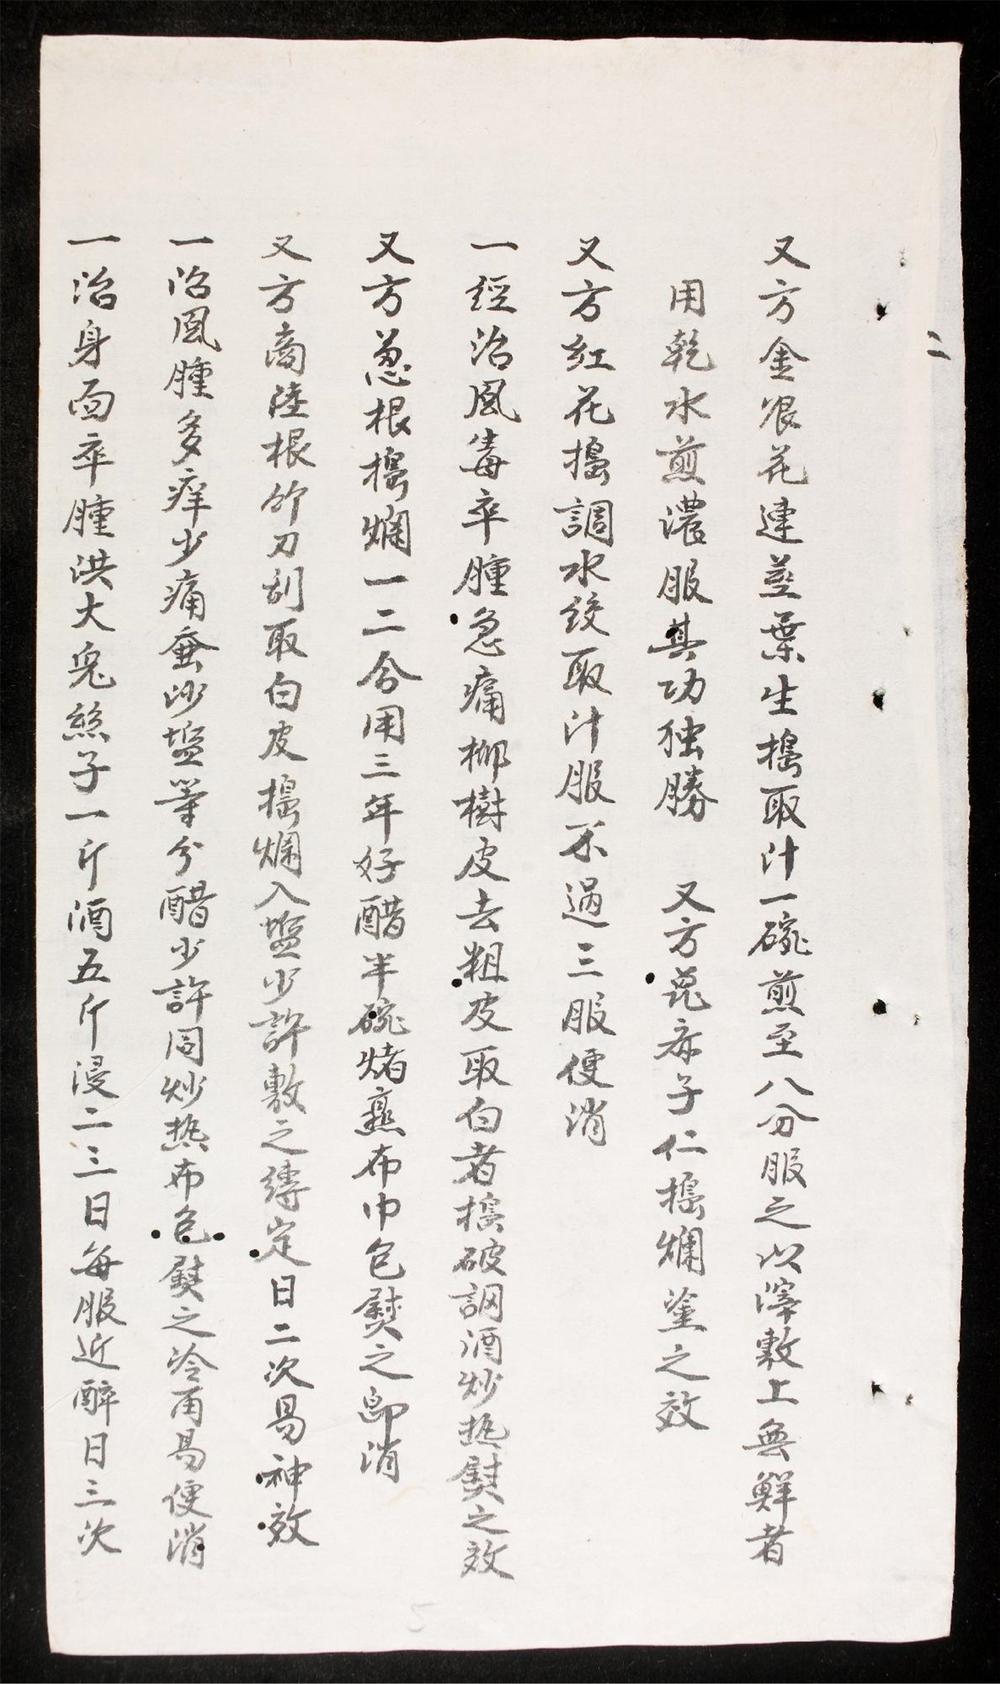 二
又方金艮花連莖葉生搗取汁一碗煎至八分服之以滓敷上無鮮者
用乾水煎濃服其功独勝 又方萞麻子仁搗爛塗之效
又方紅花搗調水絞取汁服不過三服便消
一經治風毒卒腫急痛柳樹皮去粗皮取白者搗破調酒炒热熨之效
又方葱根搗爛一二合用三年好醋半碗烤熏布巾包熨之即消
又方商陸根竹刀刮取白皮搗爛入盬少許敷之縛定日二次易神效
一治風腫多痒少痛蚕沙盬等分醋少許同炒热布包熨之冷再易便消
一治身面卒腫洪大兔絲子一斤酒五斤浸二三日每服近醉日三次
5